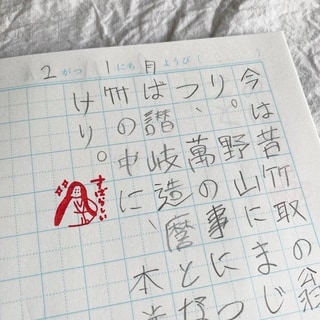 2がつ1にち月ようび(
今は昔竹取の翁
り。野山にまじ
つ、萬の事につ
ば讃岐造麿とな
竹の中に、本
けり。
すばらしい